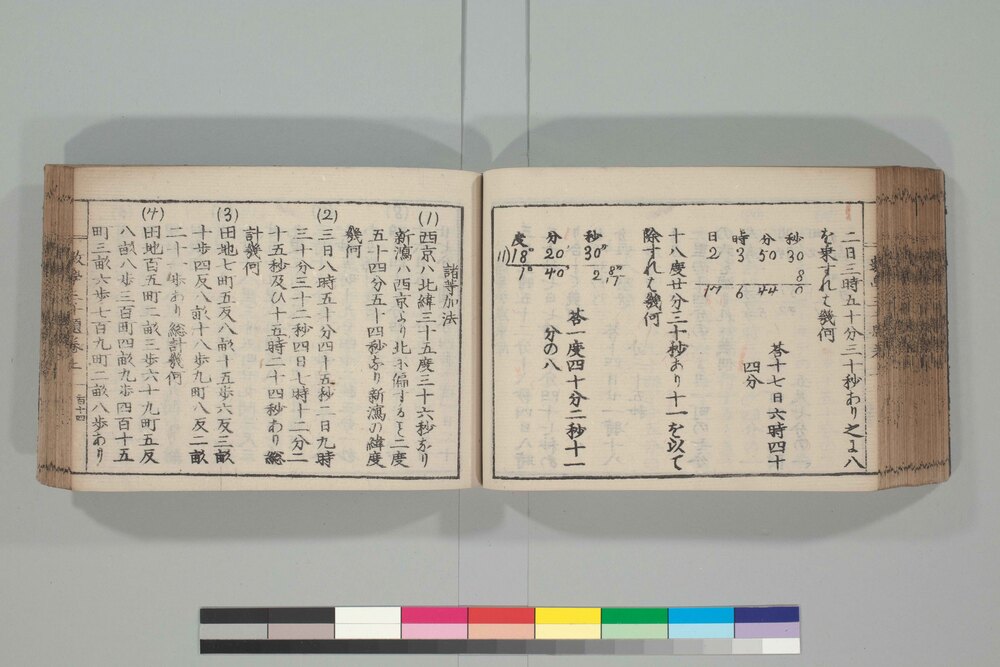 二日三時五十分三十秒あり之に八
を乗すれは幾何
答十七日六時四十
四分
日 時 分 秒
2 3 50 30
8
17 6 44 0
十八度廿分三十秒あり十一を以て
除すれは幾何
答一度四十分二秒十一
分の八
度 分 秒
11)18° 20' 30"
1° 40' 2 8"/11
諸等加法
(1) 西京ハ北緯三十五度三十六秒なり
新瀉ハ西京より北に偏すること二度
五十四分五十四秒なり新瀉の緯度
幾何
(2) 三日八時五十分四十五秒二日九時
三十分三十二秒四日七時十二分二
十五秒及ひ十五時二十四秒あり総
計幾何
(3) 田地七町五反八畝十五歩六反三畝
十歩四反八畝十八歩九町八反二畝
二十一歩あり総計幾何
(4) 田地百五町二畝三歩六十九町五反
八畝八歩三百町四畝九歩四百十五
町三畝六歩七百九町二畝八歩あり
百十四